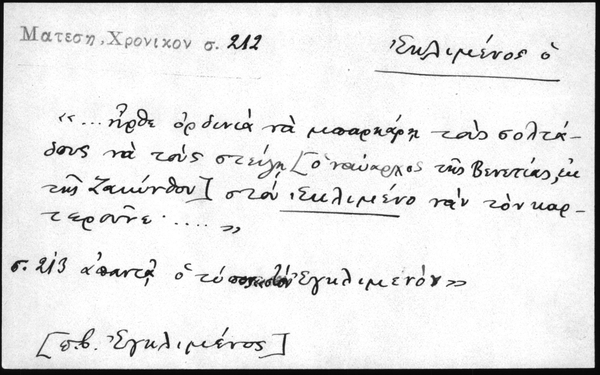 Ματεση, Χρονικον σ. 212
Ἐκλιμένος ὁ
«... ἦρθε ὀρδινιὰ νὰ μπαρκάρη τοὺς σολτά-
δους νὰ τοὺς στείλη [ὁ ναύαρχος τῆς Βενετίας, ἐκ
τῆς Ζακύνθου] στὸν Ἐκλιμένο νὰν τὸν καρ-
τεροῦνε ....»
σ. 213 ἀπαντᾷ ὁ τύπος Ἐγκλιμενόν»
[π.β. Ἐγκλιμένος]